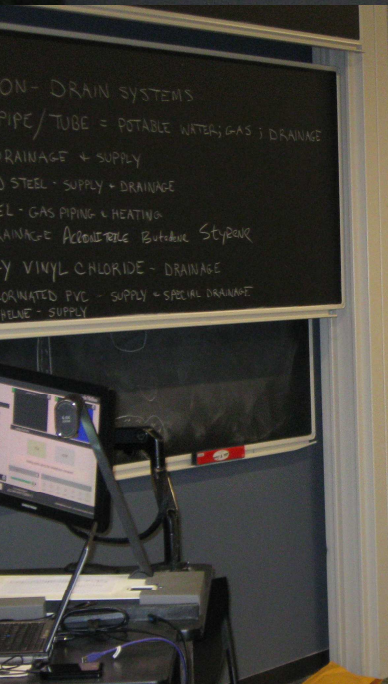 ON - DRAIN SYSTEMS
PIPE/TUBE = POTABLE WATER; GAS; DRAINAGE
DRAINAGE & SUPPLY
D STEEL - SUPPLY & DRAINAGE
EL - GAS PIPING & HEATING
AINAGE Butadene Styrene
Y VINYL CHLORIDE - DRAINAGE
LORINATED PVC - SUPPLY & SPECIAL DRAINAGE
HELNE - SUPPLY